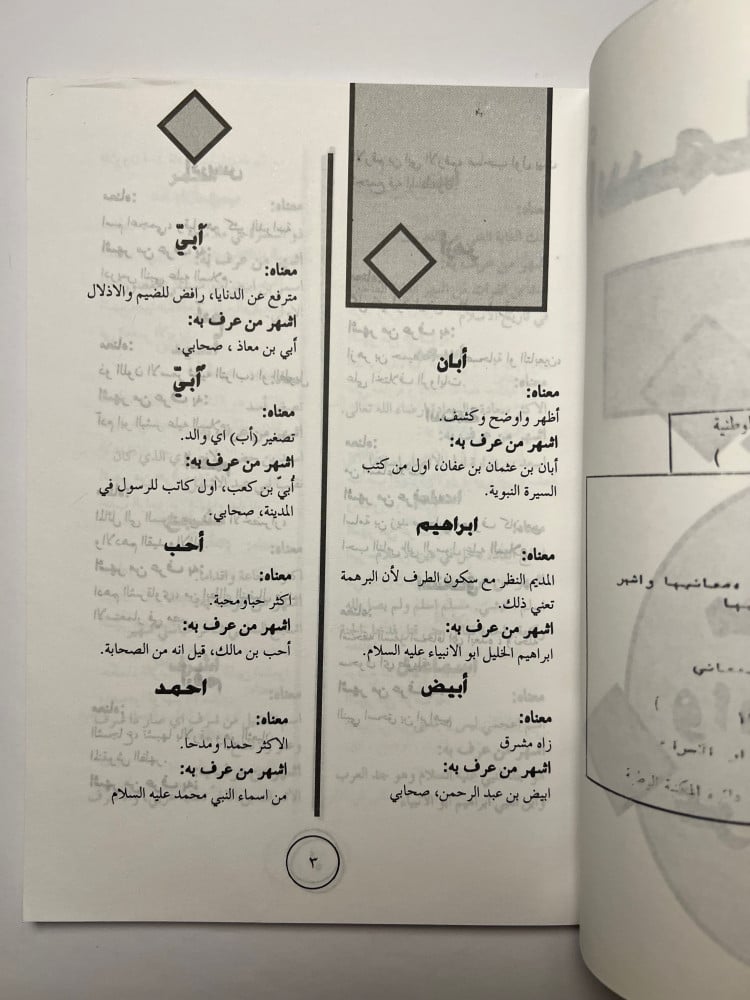 أبان
معناه:
أظهر واوضح وكشف.
اشهر من عرف به:
أبان بن عثمان بن عفان، اول من كتب
السيرة النبوية.
ابراهيم
معناه:
المديم النظر مع سكون الطرف لأن البرهمة
تعني ذلك.
اشهر من عرف به:
ابراهيم الخليل ابو الانبياء عليه السلام.
أبيض
معناه:
زاه مشرق
اشهر من عرف به:
ابيض بن عبد الرحمن، صحابي
أبيّ
معناه:
مترفع عن الدنايا، رافض للضيم والاذلال
اشهر من عرف به:
أبي بن معاذ ، صحابي.
أبيّ
معناه:
تصغير (أب) اي والد.
اشهر من عرف به:
أُبيّ بن كعب، اول كاتب للرسول في
المدينة، صحابي.
أحب
معناه:
اكثر حبا ومحبة.
اشهر من عرف به:
أحب بن مالك، قيل انه من الصحابة.
احمد
معناه:
الاكثر حمدا ومدحا.
اشهر من عرف به:
من اسماء النبي محمد عليه السلام
٣
ومعانيها واشهر